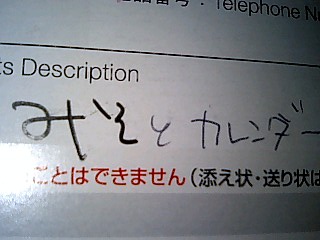 電話番号・Telephone Nu
ts Description
みそとカレンダー
ことはできません（添え状・送り状は